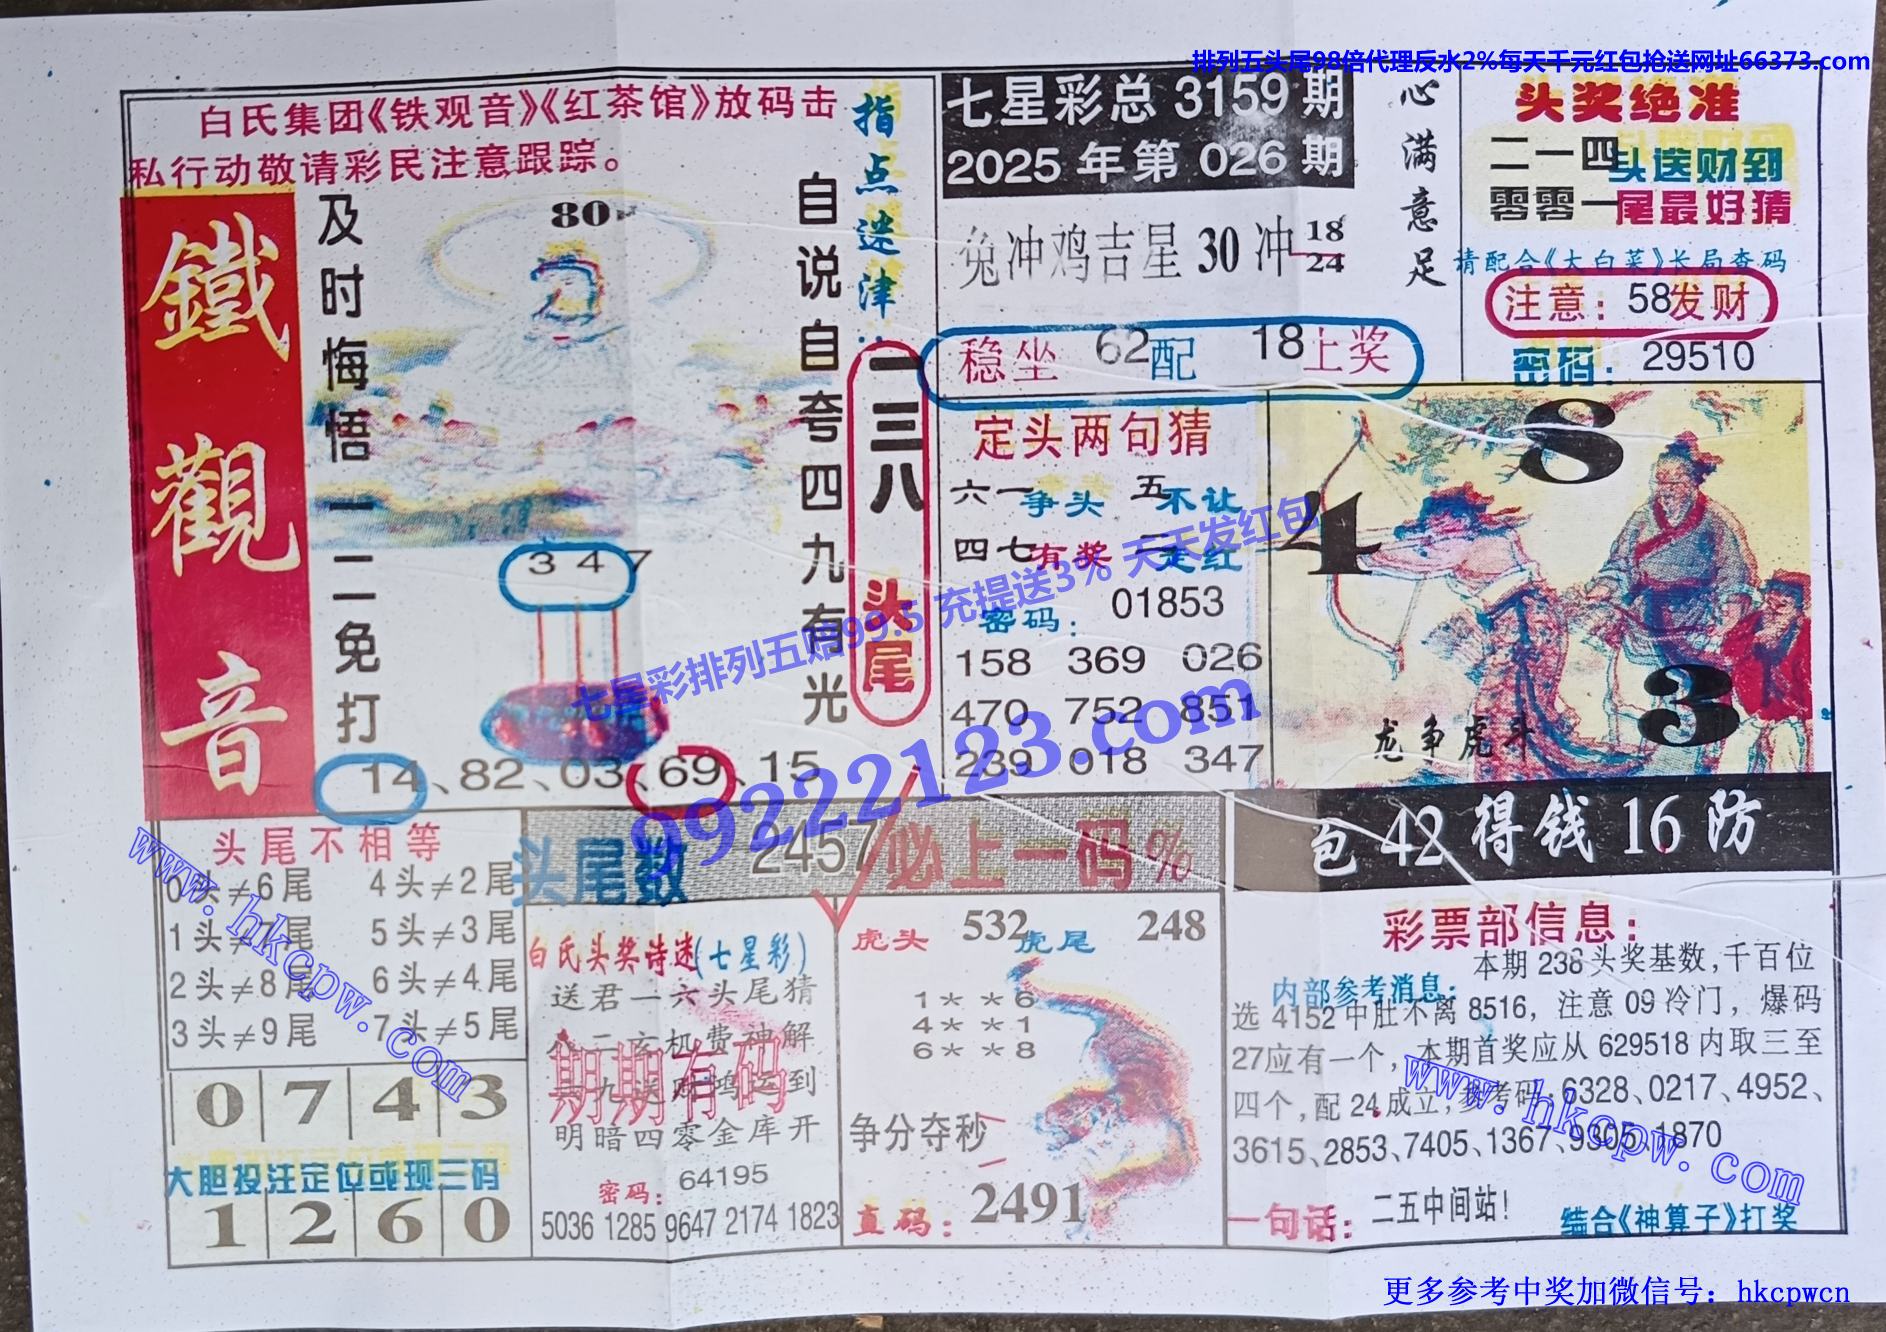 排列五头尾98倍代理反水2%每天千元红包抢送网址66373.com
白氏集团《铁观音》《红茶馆》放码击
私行动敬请彩民注意跟踪。
鐵觀音
及时悔悟一二免打
80
自说自夸四九有光
指点迷津:
一三八头尾
347
14、82、03、69、15
七星彩总3159期
2025年第026期
兔冲鸡吉星30冲
18
24
心满意足
稳坐 62配 18上奖
头奖绝准
二一四头送财到
零零一尾最好猜
请配合《大白菜》长局查码
注意:58发财
密码:29510
定头两句猜
六一争头 五不让
四七有奖 二走红
密码:01853
158 369 026
470 752 851
239 018 347
8
4
3
龙争虎斗
七星彩排列五赔99.5 充提送3% 天天发红包
99222123.com
包42得钱16防
头尾不相等
0头≠6尾 4头≠2尾
1头≠7尾 5头≠3尾
2头≠8尾 6头≠4尾
3头≠9尾 7头≠5尾
0 7 4 3
大胆投注定位或现三码
1 2 6 0
头尾数 2457必上一码%
白氏头奖诗迷(七星彩)
送君一六头尾猜
二玄机费神解
九送财鸿运到
明暗四零金库开
期期有码
密码:64195
5036 1285 9647 2174 1823
虎头 532虎尾 248
1**6
4**1
6**8
争分夺秒
直码:2491
彩票部信息:
内部参考消息:本期238头奖基数,千百位
选4152中肚不离8516,注意09冷门,爆码
27应有一个,本期首奖应从629518内取三至
四个,配24成立,参考码:6328、0217、4952、
3615、2853、7405、1367、9305、1870
一句话:二五中间站!
结合《神算子》打奖
www.hkcpw.com
www.hkcpw.com
更多参考中奖加微信号:hkcpwcn